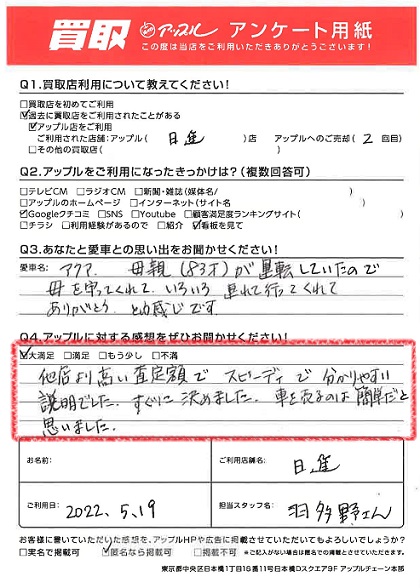 買取 アップル アンケート用紙
この度は当店をご利用いただきありがとうございます!
Q1.買取店利用について教えてください!
□買取店を初めてご利用
☑過去に買取店をご利用されたことがある
☑アップル店をご利用
ご利用された店舗:アップル( 日進 )店 アップルへのご売却( 2 回目)
□その他の買取店( )
Q2.アップルをご利用になったきっかけは?(複数回答可)
□テレビCM □ラジオCM □新聞・雑誌(媒体名/ )
□アップルのホームページ □インターネット(サイト名 )
☑Googleクチコミ □SNS □Youtube □顧客満足度ランキングサイト( )
□チラシ □利用経験があるので □紹介 ☑看板を見て
Q3.あなたと愛車との思い出をお聞かせください!
愛車名: アクア. 母親(83才)が運転していたので
母を守ってくれて、いろいろ 連れて行ってくれて
ありがとう、と感じです。
Q4.アップルに対する感想をぜひお聞かせください!
☑大満足 □満足 □もう少し □不満
他店より高い査定額で スピーディで分かりやすい
説明でした. すぐに決めました. 車を売るのは簡単だと
思いました.
お名前:
ご利用店舗名: 日進
ご利用日: 2022.5.19
担当スタッフ名: 羽多野さん
お客様に書いていただいた感想を、アップルHPや広告に掲載させていただいてもよろしいでしょうか?
□実名で掲載可 ☑匿名なら掲載可 □掲載不可 ※ご記入がない場合は匿名での掲載とさせていただきます。
東京都中央区日本橋1丁目16番11号日本橋Dスクエア9F アップルチェーン本部